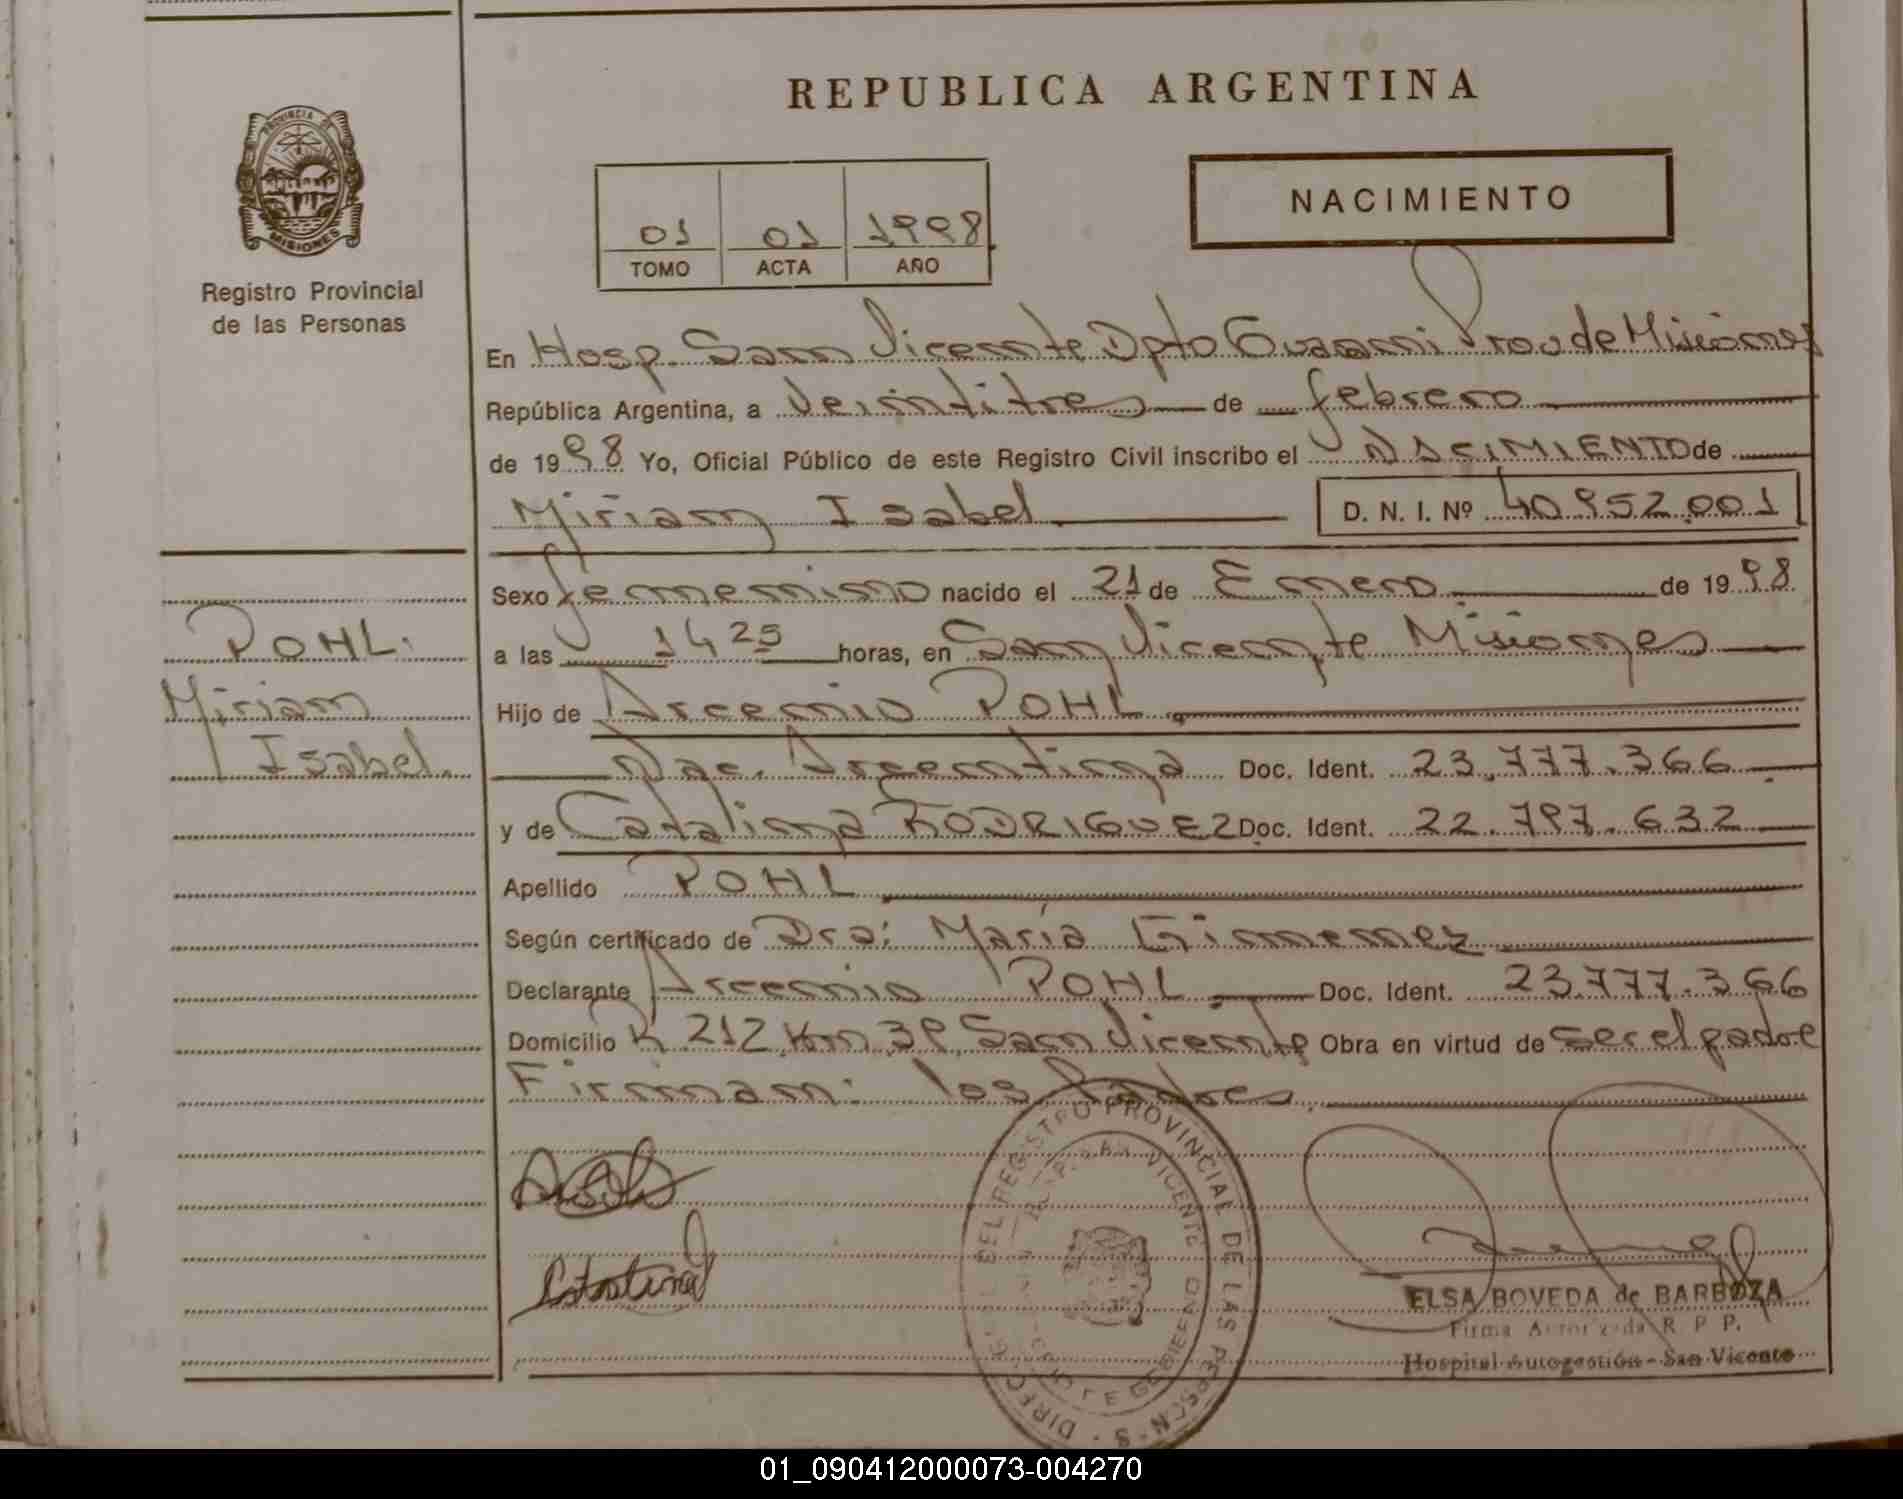 REPUBLICA ARGENTINA
PROVINCIA DE
MISIONES
Registro Provincial
de las Personas
01 01 1998
TOMO ACTA AÑO
NACIMIENTO
En Hosp. San Vicente Dpto Guarani Prov de Misiones
República Argentina, a Veintitres de febrero
de 1998 Yo, Oficial Público de este Registro Civil inscribo el NACIMIENTO de
Miriam Isabel D. N. I. Nº 40952.001
Sexo femenino nacido el 21 de Enero de 1998
a las 14 25 horas, en San Vicente Misiones
Hijo de Arcenio POHL
Nac. Argentina Doc. Ident. 23.777.366
y de Catalina RODRIGUEZ Doc. Ident. 22.797.632
Apellido POHL
Según certificado de Dra: María Gimenez
Declarante Arcenio POHL Doc. Ident. 23.777.366
Domicilio R 212 Km 39 San Vicente Obra en virtud de ser el padre
Firman: los Padres.
POHL.
Miriam
Isabel.
Catalina
DEL REGISTRO PROVINCIAL DE LAS PERSONAS
VICENTE
GOBIERNO
ELSA BOVEDA de BARBOZA
Firma Autorizada R. P. P.
Hospital Autogestión - San Vicente
01_090412000073-004270